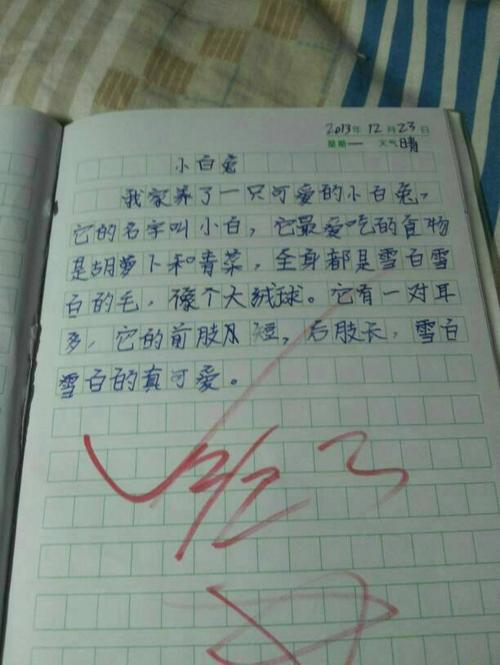 2013年 12月23日
星期一 天气晴
小白兔
我家养了一只可爱的小白兔,
它的名字叫小白,它最爱吃的食物
是胡萝卜和青菜,全身都是雪白雪
白的毛,像个大绒球。它有一对耳
多,它的前肢短,后肢长,雪白
雪白的真可爱。